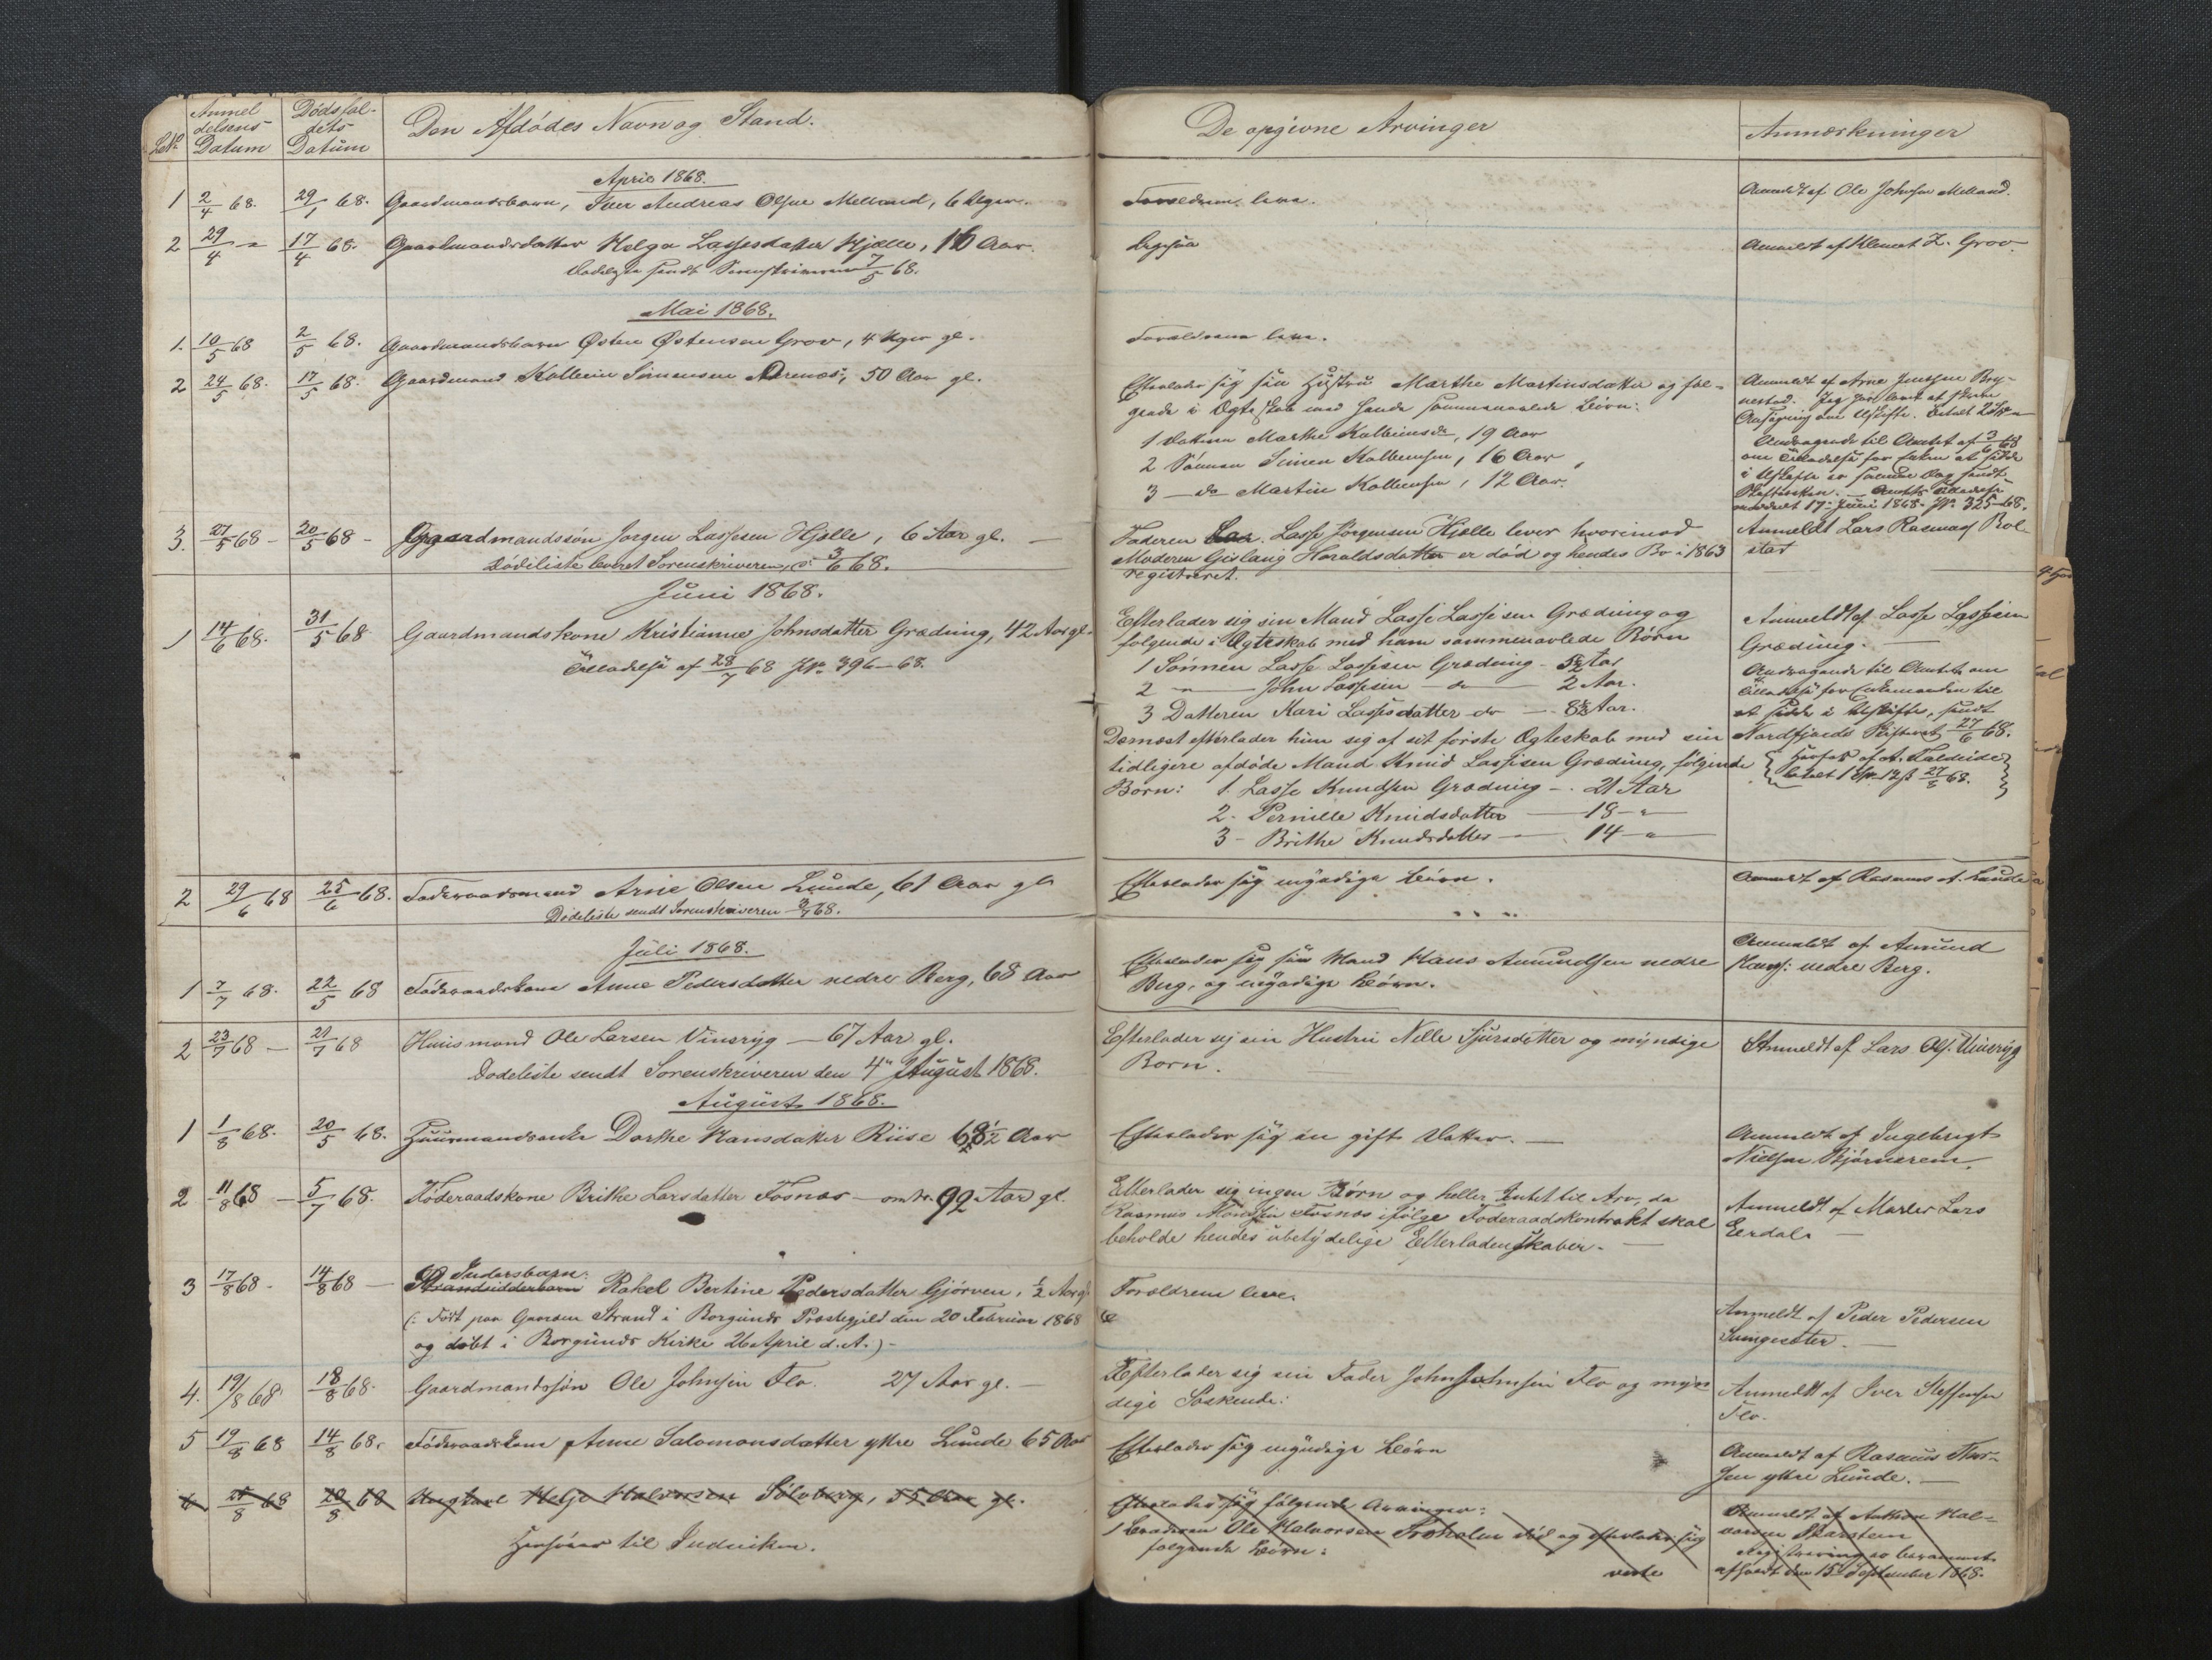 LNo.
Anmel
delsens
Datum
Dødsfal-
dets
Datum
Den Afdødes Navn og Stand.
April 1868.
1 2/4 68. 29/1 68. Gaardmandsbarn, Iver Andreas Olsen Melland, 6 Uger.
2 29/4 " 17/4 68. Gaardmandsdatter Helga Lassesdatter Hjelle, 16 Aar.
Dødsliste sendt Sorenskriveren 7/5 68.
Mai 1868.
1. 10/5 68 2/5 68. Gaardmandsbarn Østen Østensen Grov, 4 Uger gl.
2 24/5 68. 17/5 68. Gaardmand Kolbein Simensen, 50 Aar gl.
3. 27/5 68 - 20/5 68 - Gaardmandssøn Jørgen Lassesen Hjelle, 6 Aar gl. —
Dødsliste levert Sorenskriveren, d. 3/6 68.
Juni 1868.
1 14/6 68. 31/5 68 Gaardmandskone Kristianne Johnsdatter Græding, 42 Aar gl.
Tilladelse af 28/7 68 J.No. 396-68.
2 29/6 68 25/6 68. Føderaadsmand Arne Olsen Lunde, 61 Aar gl.
Dødsliste sendt Sorenskriveren 3/7 68.
Juli 1868.
1 7/7 68. 22/5 68 Føderaadskone Anne Pedersdatter nedre Berg, 68 Aar
2 23/7 68 — 21/7 68 Huusmand Ole Larsen Vinsryg — 67 Aar gl.
Dødsliste sendt Sorenskriveren den 4de August 1868.
August 1868.
1 1/8 68. 20/5 68. Huusmandsenke Dorthe Hansdatter Riise 68 1/2 Aar
2 11/8 68 — 5/7 68. Føderaadskone Brithe Larsdatter Fosnæs — omtr. 92 Aar gl.
3 17/8 68 - 14/8 68 — Indersbarn:
Strandsidderbarn Rakel Bertine Pedersdatter Gjørven, 1/2 Aar gl.
(: Født paa Gaarden Strand i Borgunds Præstegjeld den 20 Februar 1868
og døbt i Borgunds Kirke 26 April d. A.) -
4. 19/8 68. 18/8 68. Gaardmandssøn Ole Johnsen Flo. 27 Aar gl. —
5 19/8 68 14/8 68. Føderaadskone Anne Salomonsdatter ytre Lunde 65 Aar
6 /8 68 20/8 68 Helje Halvorsen Sølvberg, 55 Aar gl.
Henføres til Indviken.
De opgivne Arvinger
Forældrene leve.
Ligesaa
Forældrene leve.
Efterlader sig sin Hustru Marthe Martinsdatter og føl-
gende i Ægteskab med hende sammenavlede Børn:
1 Datteren Marthe Kolbeinsdr, 19 Aar
2 Sønnen Simen Kolbeinsen, 16 Aar
3 — do Martin Kolbeinsen, 12 Aar.
Faderen Lasse Jørgensen Hjelle lever hvorimod
Moderen Gislaug Haraldsdatter er død og hendes Bo i 1863
registreret.
Efterlader sig sin Mand Lasse Lassesen Græding og
følgende i Ægteskab med ham sammenavlede Børn
1 Sønnen Lasse Lassesen Græding - 5 1/2 Aar
2 " — John Lassesen — do — 2 Aar.
3 Datteren Kari Lassesdatter do — 8 1/2 Aar.
Dernæst efterlader hun sig af sit første Ægteskab med sin
tidligere afdøde Mand Knud Lassesen Græding, følgende
Børn: 1. Lasse Knudsen Græding — 21 Aar
2. Pernille Knudsdatter — 18 — "
3 - Brithe Knudsdatter — 14 — "
Efterlader sig myndige Børn.
Efterlader sig sin Mand Hans Amundsen nedre
Berg, og myndige Børn.
Efterlader sig sin Hustru Nelle Sjursdatter og myndige
Børn.
Efterlader sig en gift Datter. —
Efterlader sig ingen Børn og heller Intet til Arv, da
Rasmus Monsen Fosnæs ifølge Føderaadskontrakt skal
beholde hendes ubetydelige Efterladenskaber. —
Forældrene leve.
Efterlader sig sin Fader John Johnsen Flo og myn
dige Søskende:
Efterlader sig myndige Børn
Efterlader sig følgende Arvinger:
1 Broderen Ole Halvorsen død og efterlader sig
følgende Børn:
verte
Anmærkninger
Anmeldt af Ole Johnsen Melland.
Anmeldt af Klemet L. Grov.
Anmeldt af Arne Jenssen Bry-
nestad. Jeg har lovet at skrive
Ansøgning om Uskifte.
Andragende til Amtet af 3/6 68
om Tilladelse for Enken at sidde
i Uskifte er samme Dag sendt
Amtets Tilladelse
17 Juni 1868. J.No. 325-68.
Anmeldt Lars Rasmus. Bol-
stad
Anmeldt af Lasse Lassesen
Græding. —
Andragende til Amtet om
Tilladelse for Enkemanden til
at sidde i Uskifte, sendt
Nordfjords Skifteret 27/6 68.
Herfor af A. Faleide
betalt 1 Spd 12 s 27/6 68.
Anmeldt af Rasmus A. Lunde
Anmeldt af Amund
Hans: nedre Berg.
Anmeldt af Lars Ols. Vinsryg
Anmeldt af Ingebrigt
Nielsen Bjørnerem.
Anmeldt af Lars
Eerdal. —
Anmeldt af Peder Pedersen
Svingesæter. —
Anmeldt af Iver Steffensen
Flo.
Anmeldt af Rasmus
ytre Lunde. —
Anmeldt af Anthon Hal-
vorsen Skarstein
Registrering er berammet
afholdt den 15de September 1868.